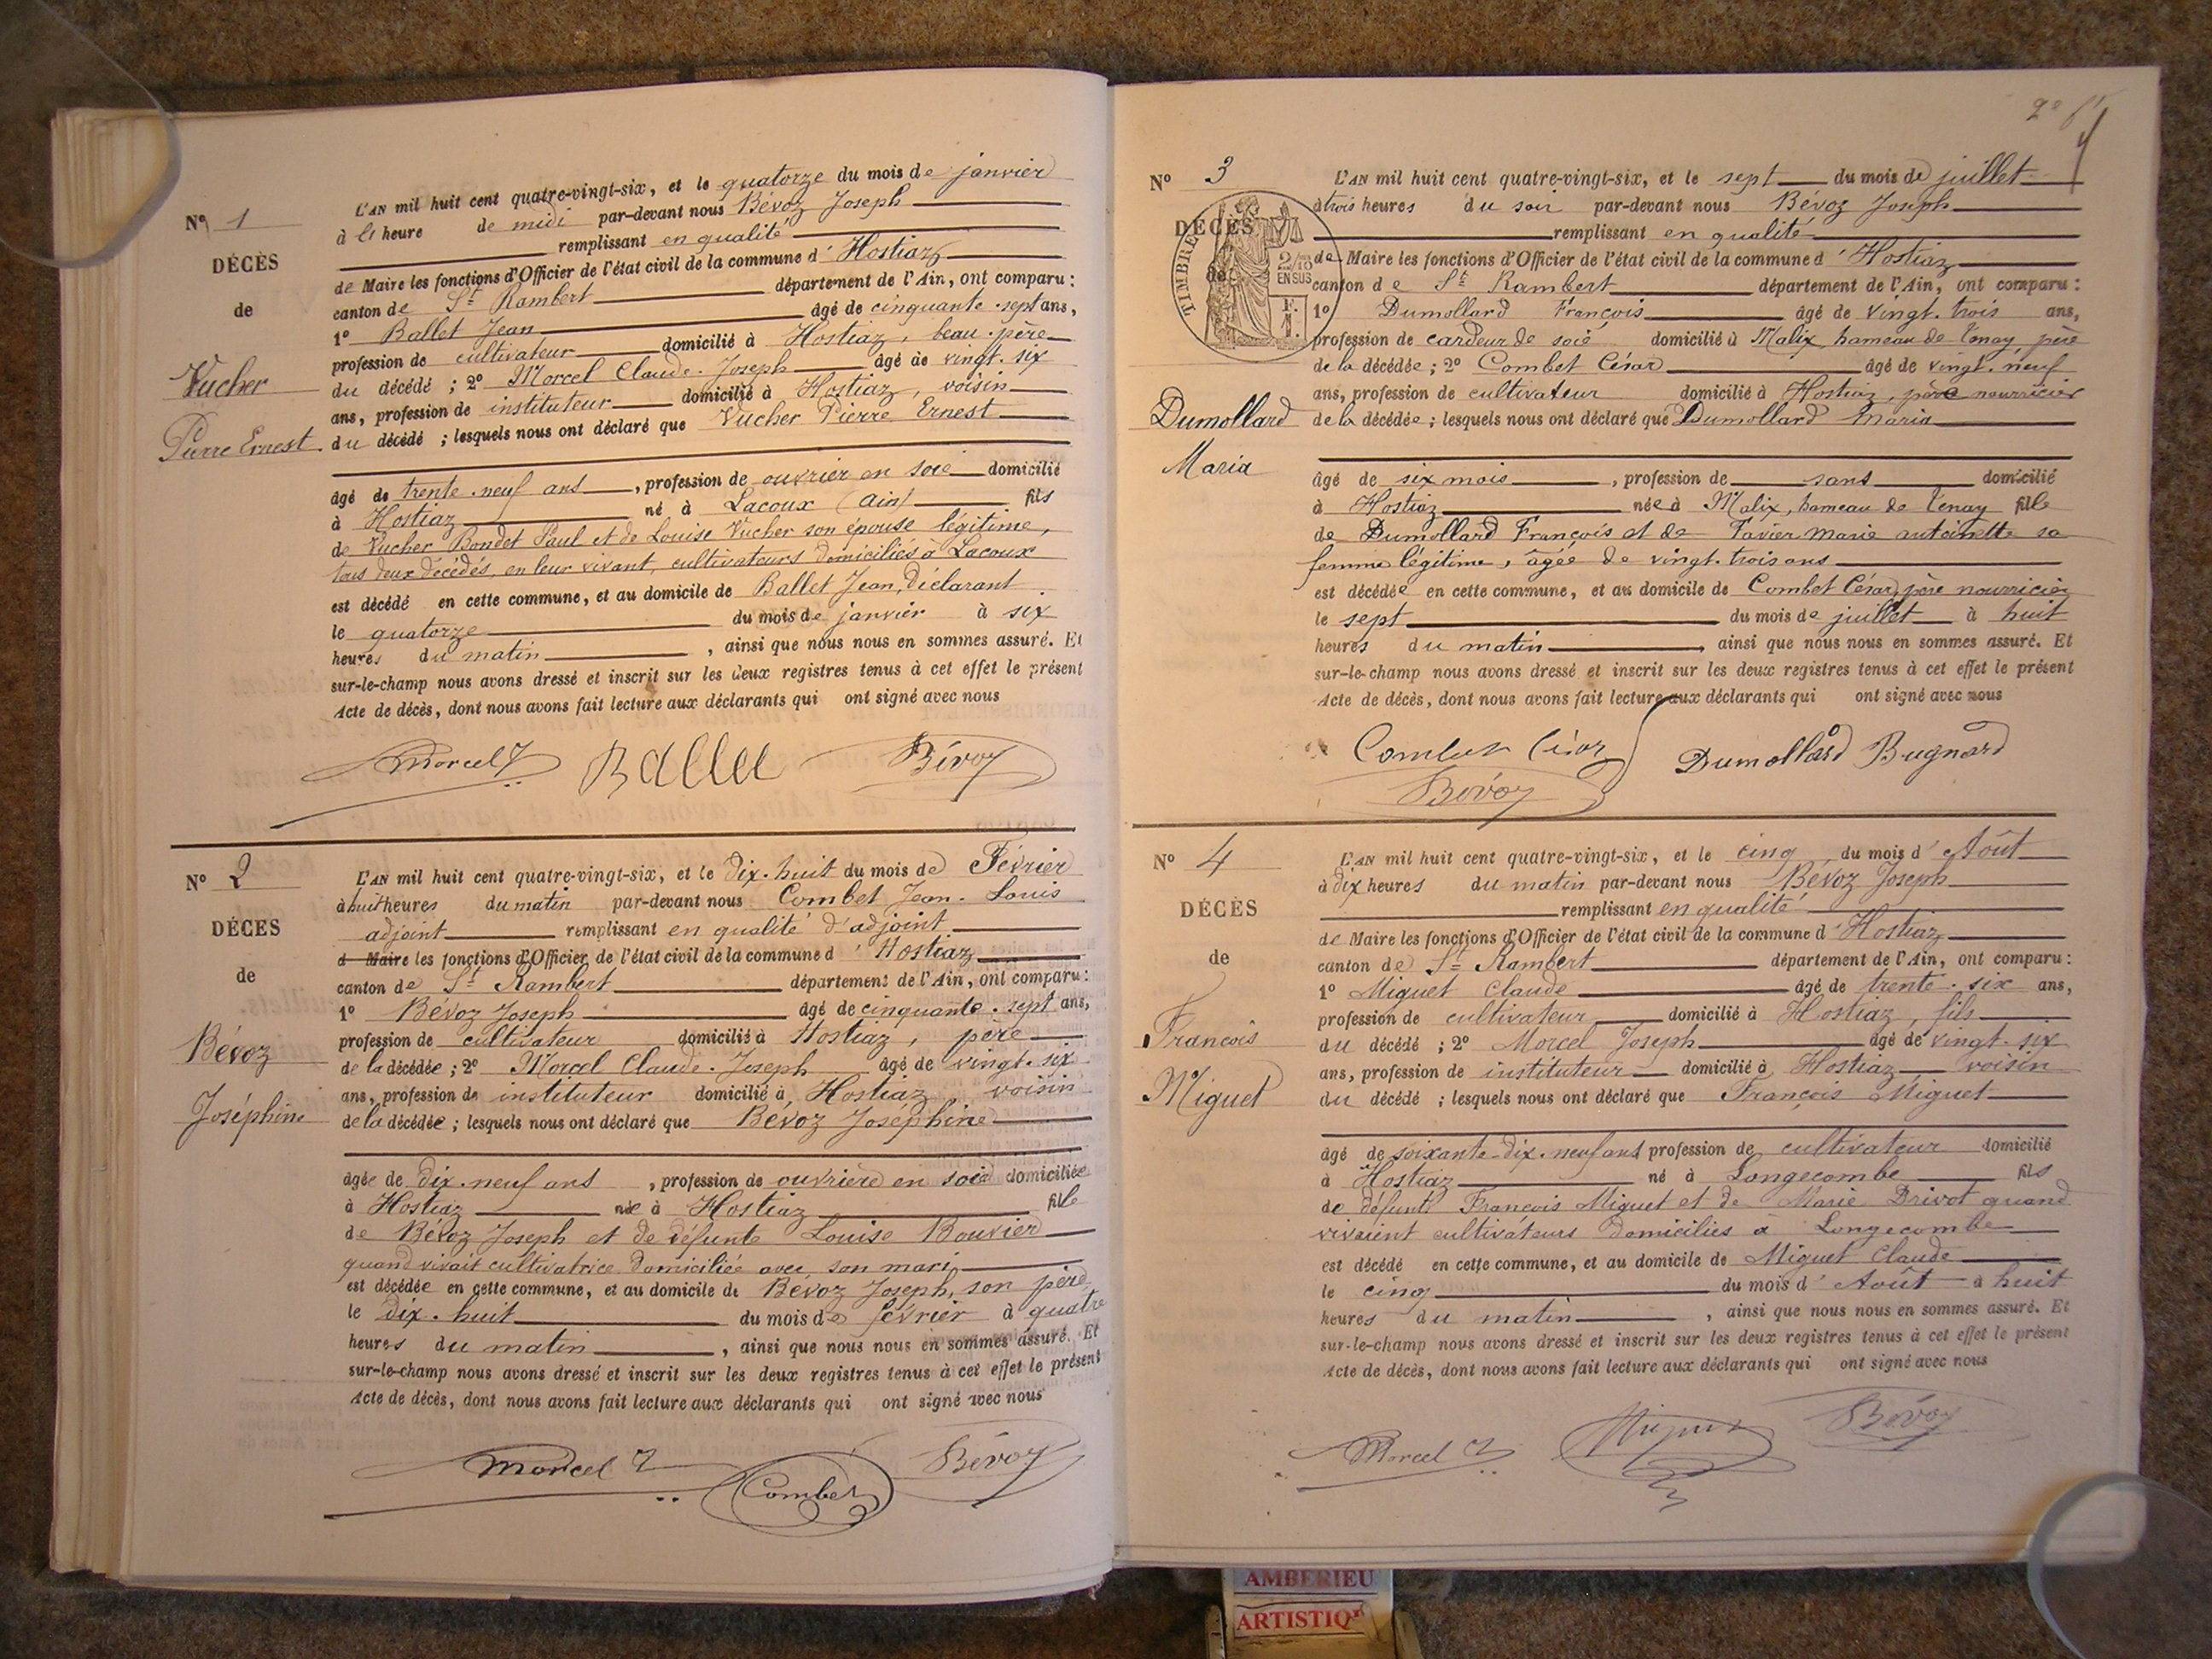 Nº 1
DÉCÈS
de
Vucher
Pierre Ernest
L'AN mil huit cent quatre-vingt-six, et le quatorze du mois de janvier
à heure de midi par-devant nous Bévoz Joseph
remplissant en qualité
de Maire les fonctions d'Officier de l'état civil de la commune d'Hostiaz
canton de St Rambert département de l'Ain, ont comparu :
1º Ballet Jean âgé de cinquante-sept ans,
profession de cultivateur domicilié à Hostiaz, beau-père
du décédé ; 2º Morcel Claude-Joseph âgé de vingt-six
ans, profession de instituteur domicilié à Hostiaz, voisin
du décédé ; lesquels nous ont déclaré que Vucher Pierre Ernest
âgé de trente-neuf ans, profession de ouvrier en soie domicilié
à Hostiaz né à Lacoux (Ain) fils
de Vucher Bondet Paul et de Louise Vucher son épouse légitime,
tous deux décédés, en leur vivant, cultivateurs domiciliés à Lacoux
est décédé en cette commune, et au domicile de Ballet Jean, déclarant
le quatorze du mois de janvier à six
heures du matin, ainsi que nous nous en sommes assuré. Et
sur-le-champ nous avons dressé et inscrit sur les deux registres tenus à cet effet le présent
Acte de décès, dont nous avons fait lecture aux déclarants qui ont signé avec nous
Morcel J Ballet Bévoz
Nº 2
DÉCÈS
de
Bévoz
Joséphine
L'AN mil huit cent quatre-vingt-six, et le dix-huit du mois de Février
à huit heures du matin par-devant nous Combet Jean-Louis
adjoint remplissant en qualité d'adjoint
d Maire les fonctions d'Officier de l'état civil de la commune d'Hostiaz
canton de St Rambert département de l'Ain, ont comparu :
1º Bévoz Joseph âgé de cinquante-sept ans,
profession de cultivateur domicilié à Hostiaz, père
de la décédée ; 2º Morcel Claude-Joseph âgé de vingt-six
ans, profession de instituteur domicilié à Hostiaz, voisin
de la décédée ; lesquels nous ont déclaré que Bévoz Joséphine
âgée de dix-neuf ans, profession de ouvrière en soie domiciliée
à Hostiaz née à Hostiaz fille
de Bévoz Joseph et de défunte Louise Bouvier
quand vivait cultivatrice domiciliée avec son mari
est décédée en cette commune, et au domicile de Bévoz Joseph, son père
le dix-huit du mois de février à quatre
heures du matin, ainsi que nous nous en sommes assuré. Et
sur-le-champ nous avons dressé et inscrit sur les deux registres tenus à cet effet le présent
Acte de décès, dont nous avons fait lecture aux déclarants qui ont signé avec nous
Morcel J Combet Bévoz
2e
Nº 3
DÉCÈS
de
TIMBRE
2/10
EN SUS
F.
1.
Dumollard
Maria
L'AN mil huit cent quatre-vingt-six, et le sept du mois de juillet
à trois heures du soir par-devant nous Bévoz Joseph
remplissant en qualité
de Maire les fonctions d'Officier de l'état civil de la commune d'Hostiaz
canton de St Rambert département de l'Ain, ont comparu :
1º Dumollard François âgé de vingt-trois ans,
profession de cardeur de soie domicilié à Malix, hameau de Tenay, père
de la décédée ; 2º Combet César âgé de vingt-neuf
ans, profession de cultivateur domicilié à Hostiaz, père nourricier
de la décédée ; lesquels nous ont déclaré que Dumollard Maria
âgé de six mois, profession de sans domicilié
à Hostiaz née à Malix, hameau de Tenay fille
de Dumollard François et de Favier Marie antoinette sa
femme légitime, âgée de vingt-trois ans
est décédée en cette commune, et au domicile de Combet César, père nourricier
le sept du mois de juillet à huit
heures du matin, ainsi que nous nous en sommes assuré. Et
sur-le-champ nous avons dressé et inscrit sur les deux registres tenus à cet effet le présent
Acte de décès, dont nous avons fait lecture aux déclarants qui ont signé avec nous
Combet César Dumollard Bugnard
Bévoz
Nº 4
DÉCÈS
de
François
Miguet
L'AN mil huit cent quatre-vingt-six, et le cinq du mois d'Août
à dix heures du matin par-devant nous Bévoz Joseph
remplissant en qualité
de Maire les fonctions d'Officier de l'état civil de la commune d'Hostiaz
canton de St Rambert département de l'Ain, ont comparu :
1º Miguet Claude âgé de trente-six ans,
profession de cultivateur domicilié à Hostiaz, fils
du décédé ; 2º Morcel Joseph âgé de vingt-six
ans, profession de instituteur domicilié à Hostiaz voisin
du décédé ; lesquels nous ont déclaré que François Miguet
âgé de soixante-dix-neuf ans profession de cultivateur domicilié
à Hostiaz né à Longecombe fils
de défunt François Miguet et de Marie Drivot quand
vivaient cultivateurs domiciliés à Longecombe
est décédé en cette commune, et au domicile de Miguet Claude
le cinq du mois d'Août à huit
heures du matin, ainsi que nous nous en sommes assuré. Et
sur-le-champ nous avons dressé et inscrit sur les deux registres tenus à cet effet le présent
Acte de décès, dont nous avons fait lecture aux déclarants qui ont signé avec nous
Morcel J Miguet Bévoz
AMBERIEU
ARTISTIQ